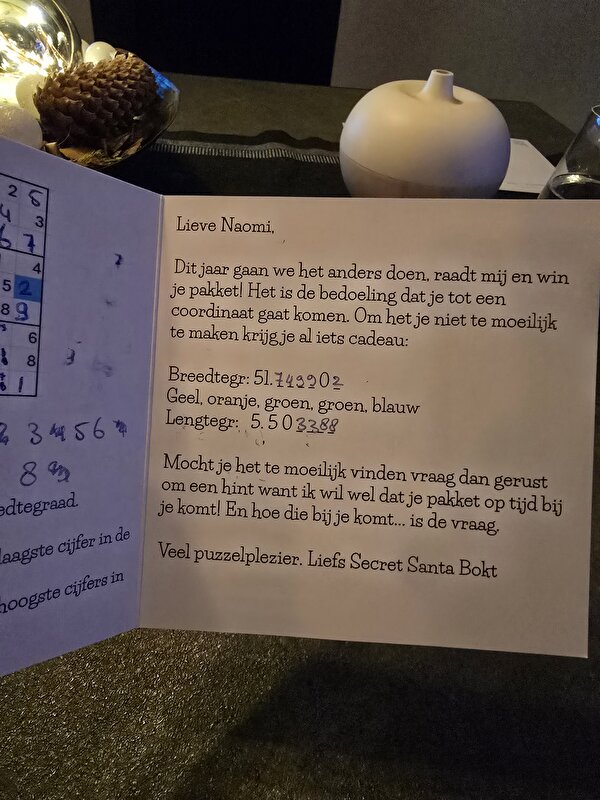 2 5
4 3
6 7
4
5 2
8 9
6
8
1
7
3
3 4 5 6
8
Lieve Naomi,
Dit jaar gaan we het anders doen, raadt mij en win
je pakket! Het is de bedoeling dat je tot een
coordinaat gaat komen. Om het je niet te moeilijk
te maken krijg je al iets cadeau:
Breedtegr: 51.749902
Geel, oranje, groen, groen, blauw
Lengtegr: 5.503388
Mocht je het te moeilijk vinden vraag dan gerust
om een hint want ik wil wel dat je pakket op tijd bij
je komt! En hoe die bij je komt... is de vraag.
Veel puzzelplezier. Liefs Secret Santa Bokt
edtegraad.
laagste cijfer in de
hoogste cijfers in